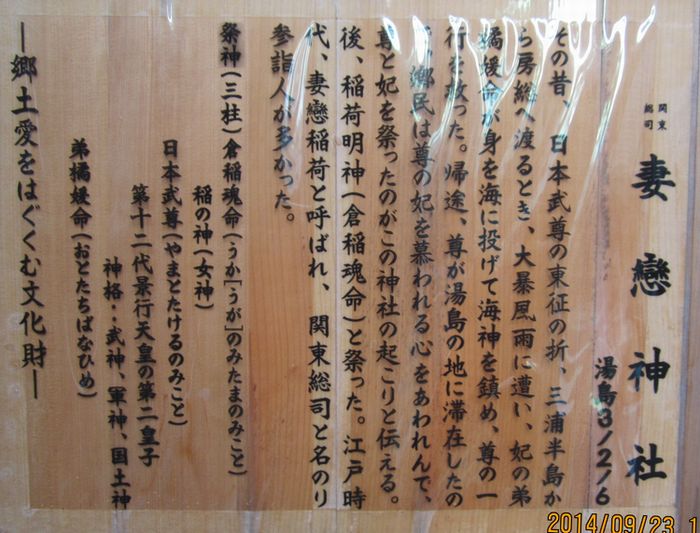 関東
総司
妻戀神社
湯島3/2/6
その昔、日本武尊の東征の折、三浦半島か
ら房総へ渡るとき、大暴風雨に遭い、妃の弟
橘媛命が身を海に投げて海神を鎮め、尊の一
行を救った。帰途、尊が湯島の地に滞在したの
郷民は尊の妃を慕われる心をあわれんで、
尊と妃を祭ったのがこの神社の起こりと伝える。
後、稲荷明神(倉稲魂命)と祭った。江戸時
代、妻戀稲荷と呼ばれ、関東総司と名のり
参詣人が多かった。
祭神(三柱)倉稲魂命(うか[うが]のみたまのみこと)
稲の神(女神)
日本武尊(やまとたけるのみこと)
第十二代景行天皇の第二皇子
神格・・武神、軍神、国土神
弟橘媛命(おとたちばなひめ)
―郷土愛をはぐくむ文化財―
2014/09/23 1